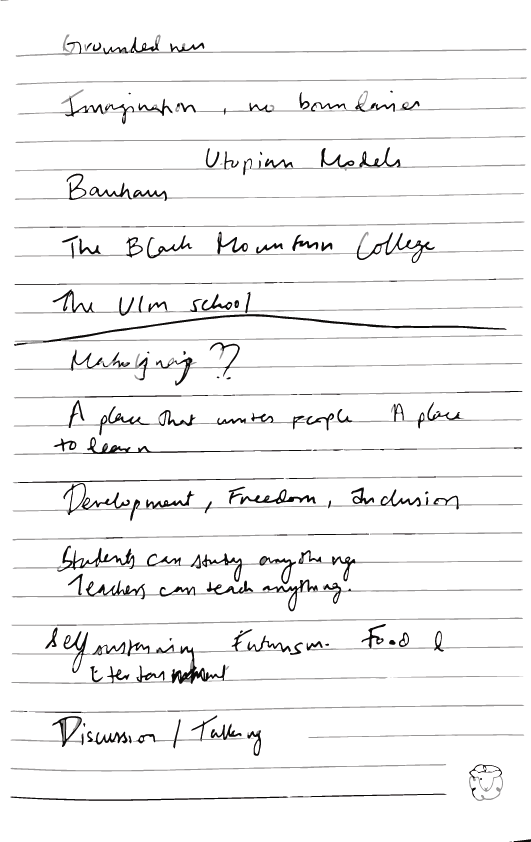 Groundedness
Imagination, no boundaries
Utopian Models
Bauhaus
The Black Mountain College
The Ulm school
??
A place that unites people A place
to learn
Development, Freedom, Inclusion
Students can study anything
Teachers can teach anything.
Self sustaining Futurism. Food &
Discussion / Talking